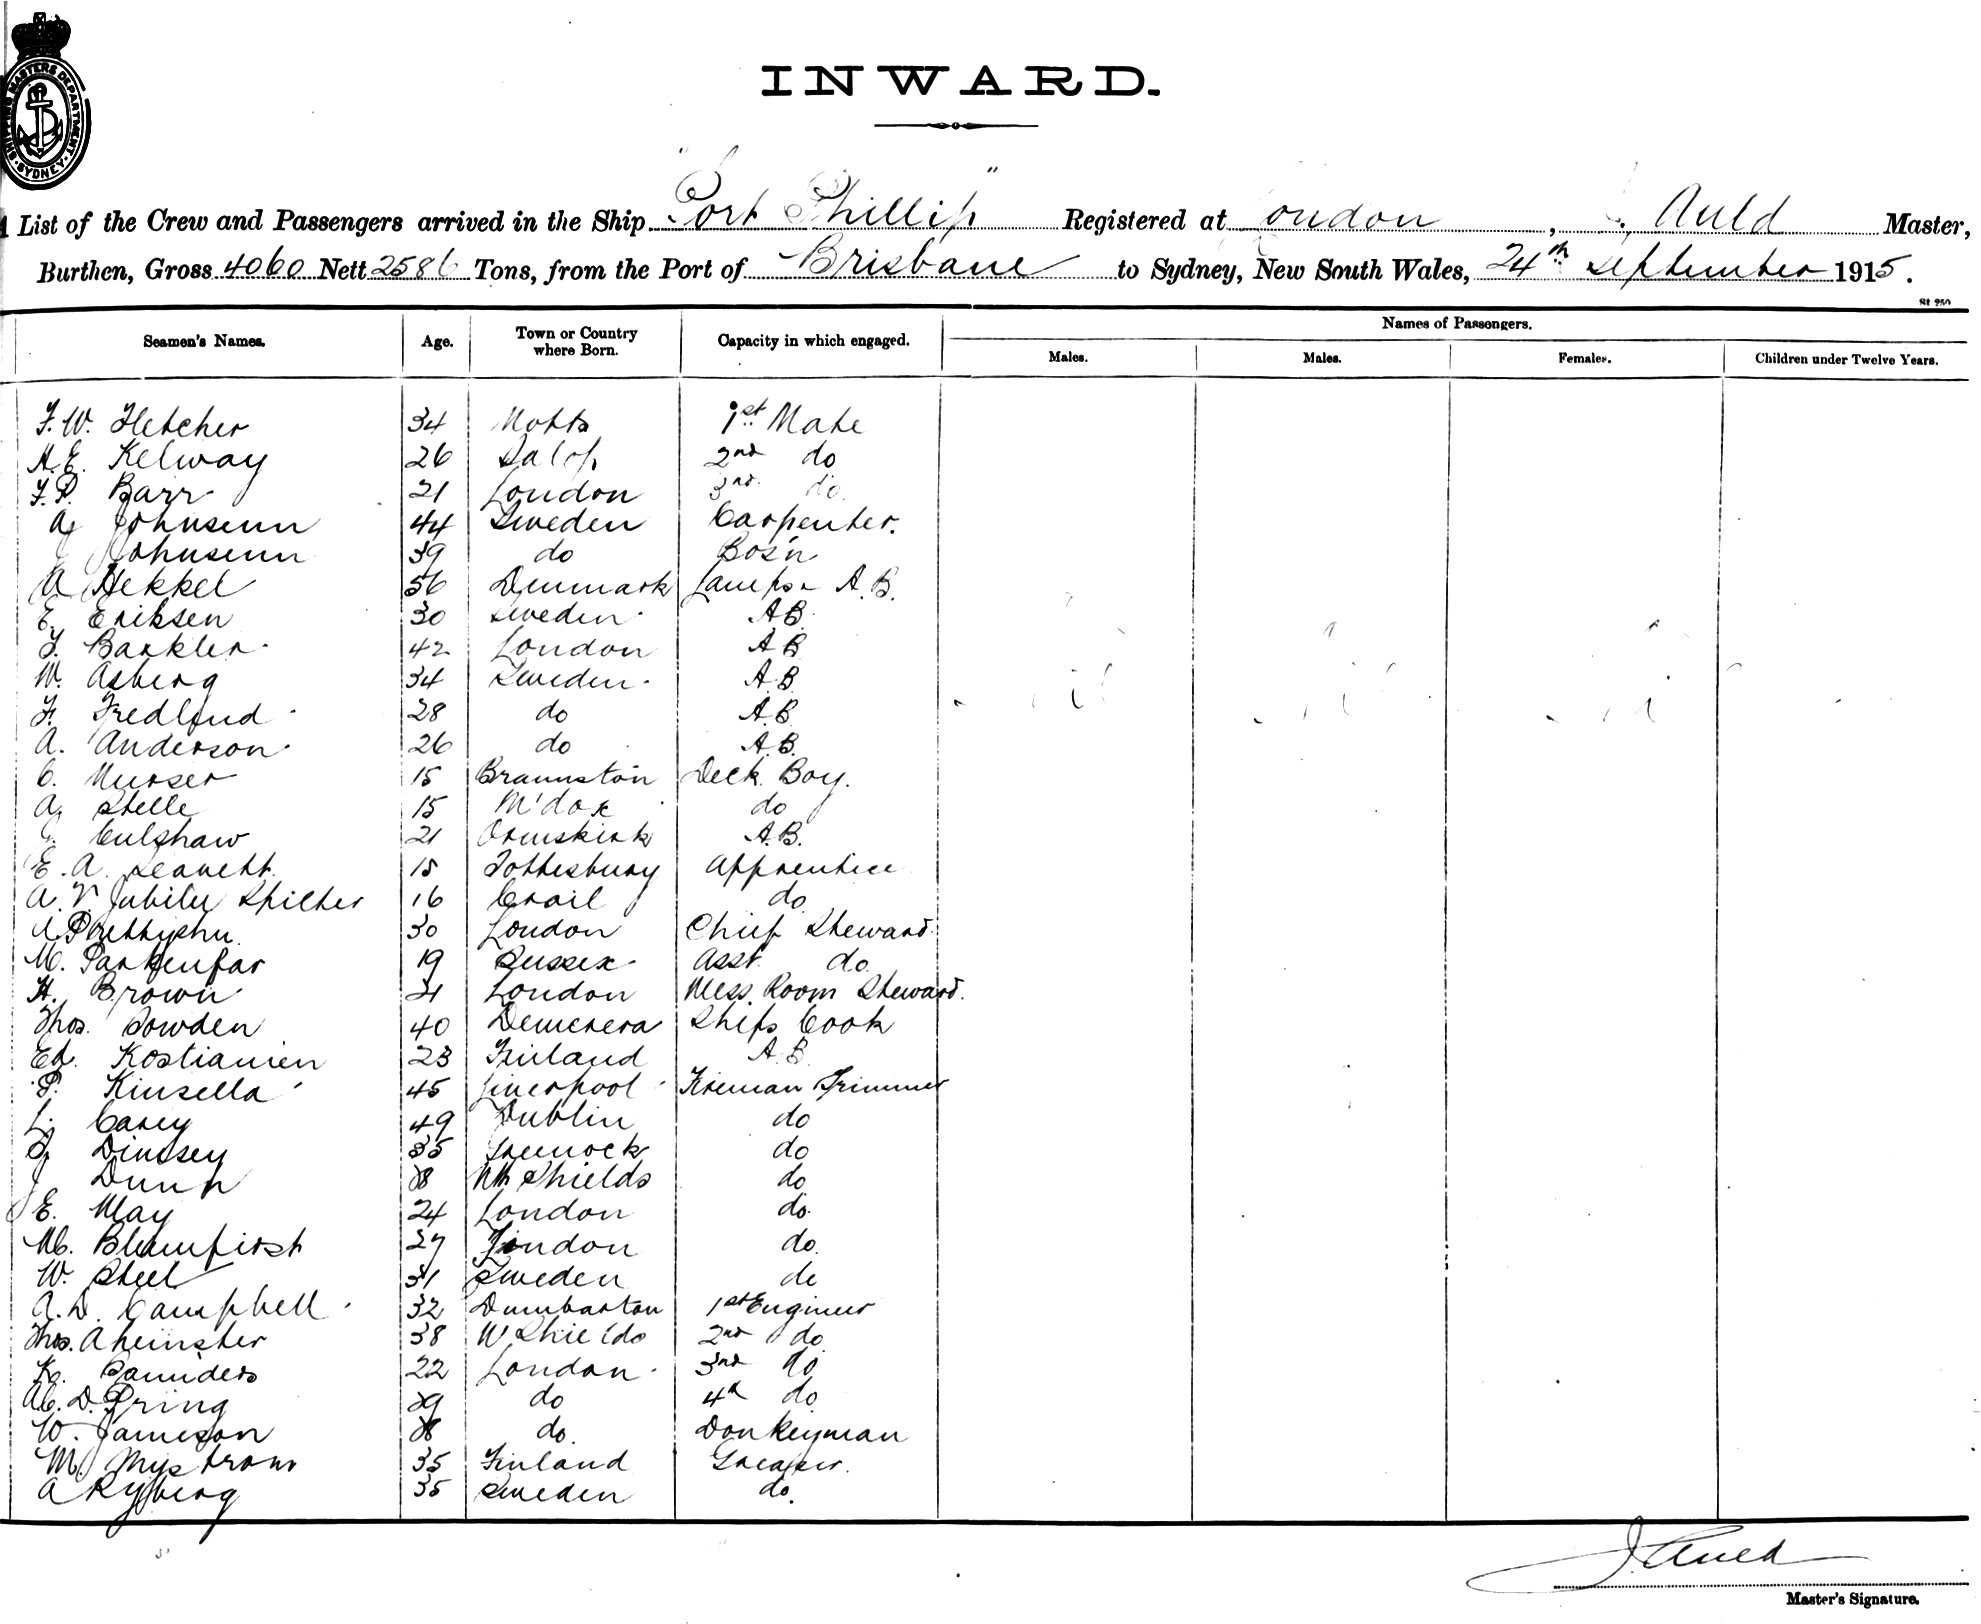 SHIPPING MASTERS DEPARTMENT · SYDNEY ·
INWARD.
List of the Crew and Passengers arrived in the Ship "Port Phillip" Registered at London, Auld Master,
Burthen, Gross 4060 Nett 2586 Tons, from the Port of Brisbane to Sydney, New South Wales, 24th September 1915.
Names of Passengers.
Seamen's Names. Age. Town or Country where Born. Capacity in which engaged. Males. Males. Females. Children under Twelve Years.
F. W. Fletcher 34 Notts 1st Mate
H. E. Kelway 26 Salop 2nd do
F. P. Barr 21 London 3rd do.
A. Johnsenn 44 Sweden Carpenter.
Johnsenn 39 do Bos'n
A Hekkel 56 Denmark Lamps & A.B.
E. Eriksen 30 Sweden A.B.
F. Barkler 42 London A.B
W. Asberg 34 Sweden A.B
F. Fredlund 28 do A.B
A. Anderson 26 do A.B.
C. Nurser 15 Braunston Deck Boy.
A. Stelle 15 M'dox do
Culshaw 21 Ormskirk A.B.
E. A. Leavett 15 Tottesbury Apprentice
A. V Jubilee Spilter 16 Crail do
30 London Chief Steward
M. Parkenfar 19 Sussex Asst. do.
H. Brown 21 London Mess Room Steward.
Thos. Sowden 40 Demerera Ships Cook
Ed. Kostianien 23 Finland A.B.
P. Kinsella 45 Liverpool Fireman Trimmer
L. Carey 49 Dublin do
Dinssey 35 Greenock do
J Dunn 38 Nth Shields do
E. May 24 London do.
M. Blumfirst 27 London do.
W. Steel 31 Sweden do
A. D. Campbell 32 Dumbarton 1st Engineer
Thos. Aheinster 38 N Shields 2nd do
K. Saunders 22 London 3rd do
D. Pring 29 do 4th do
W. Jameson 38 do. Donkeyman
M. Mystrom 35 Finland Greaser.
A Ryberg 35 Sweden do.
J. Auld
Master's Signature.